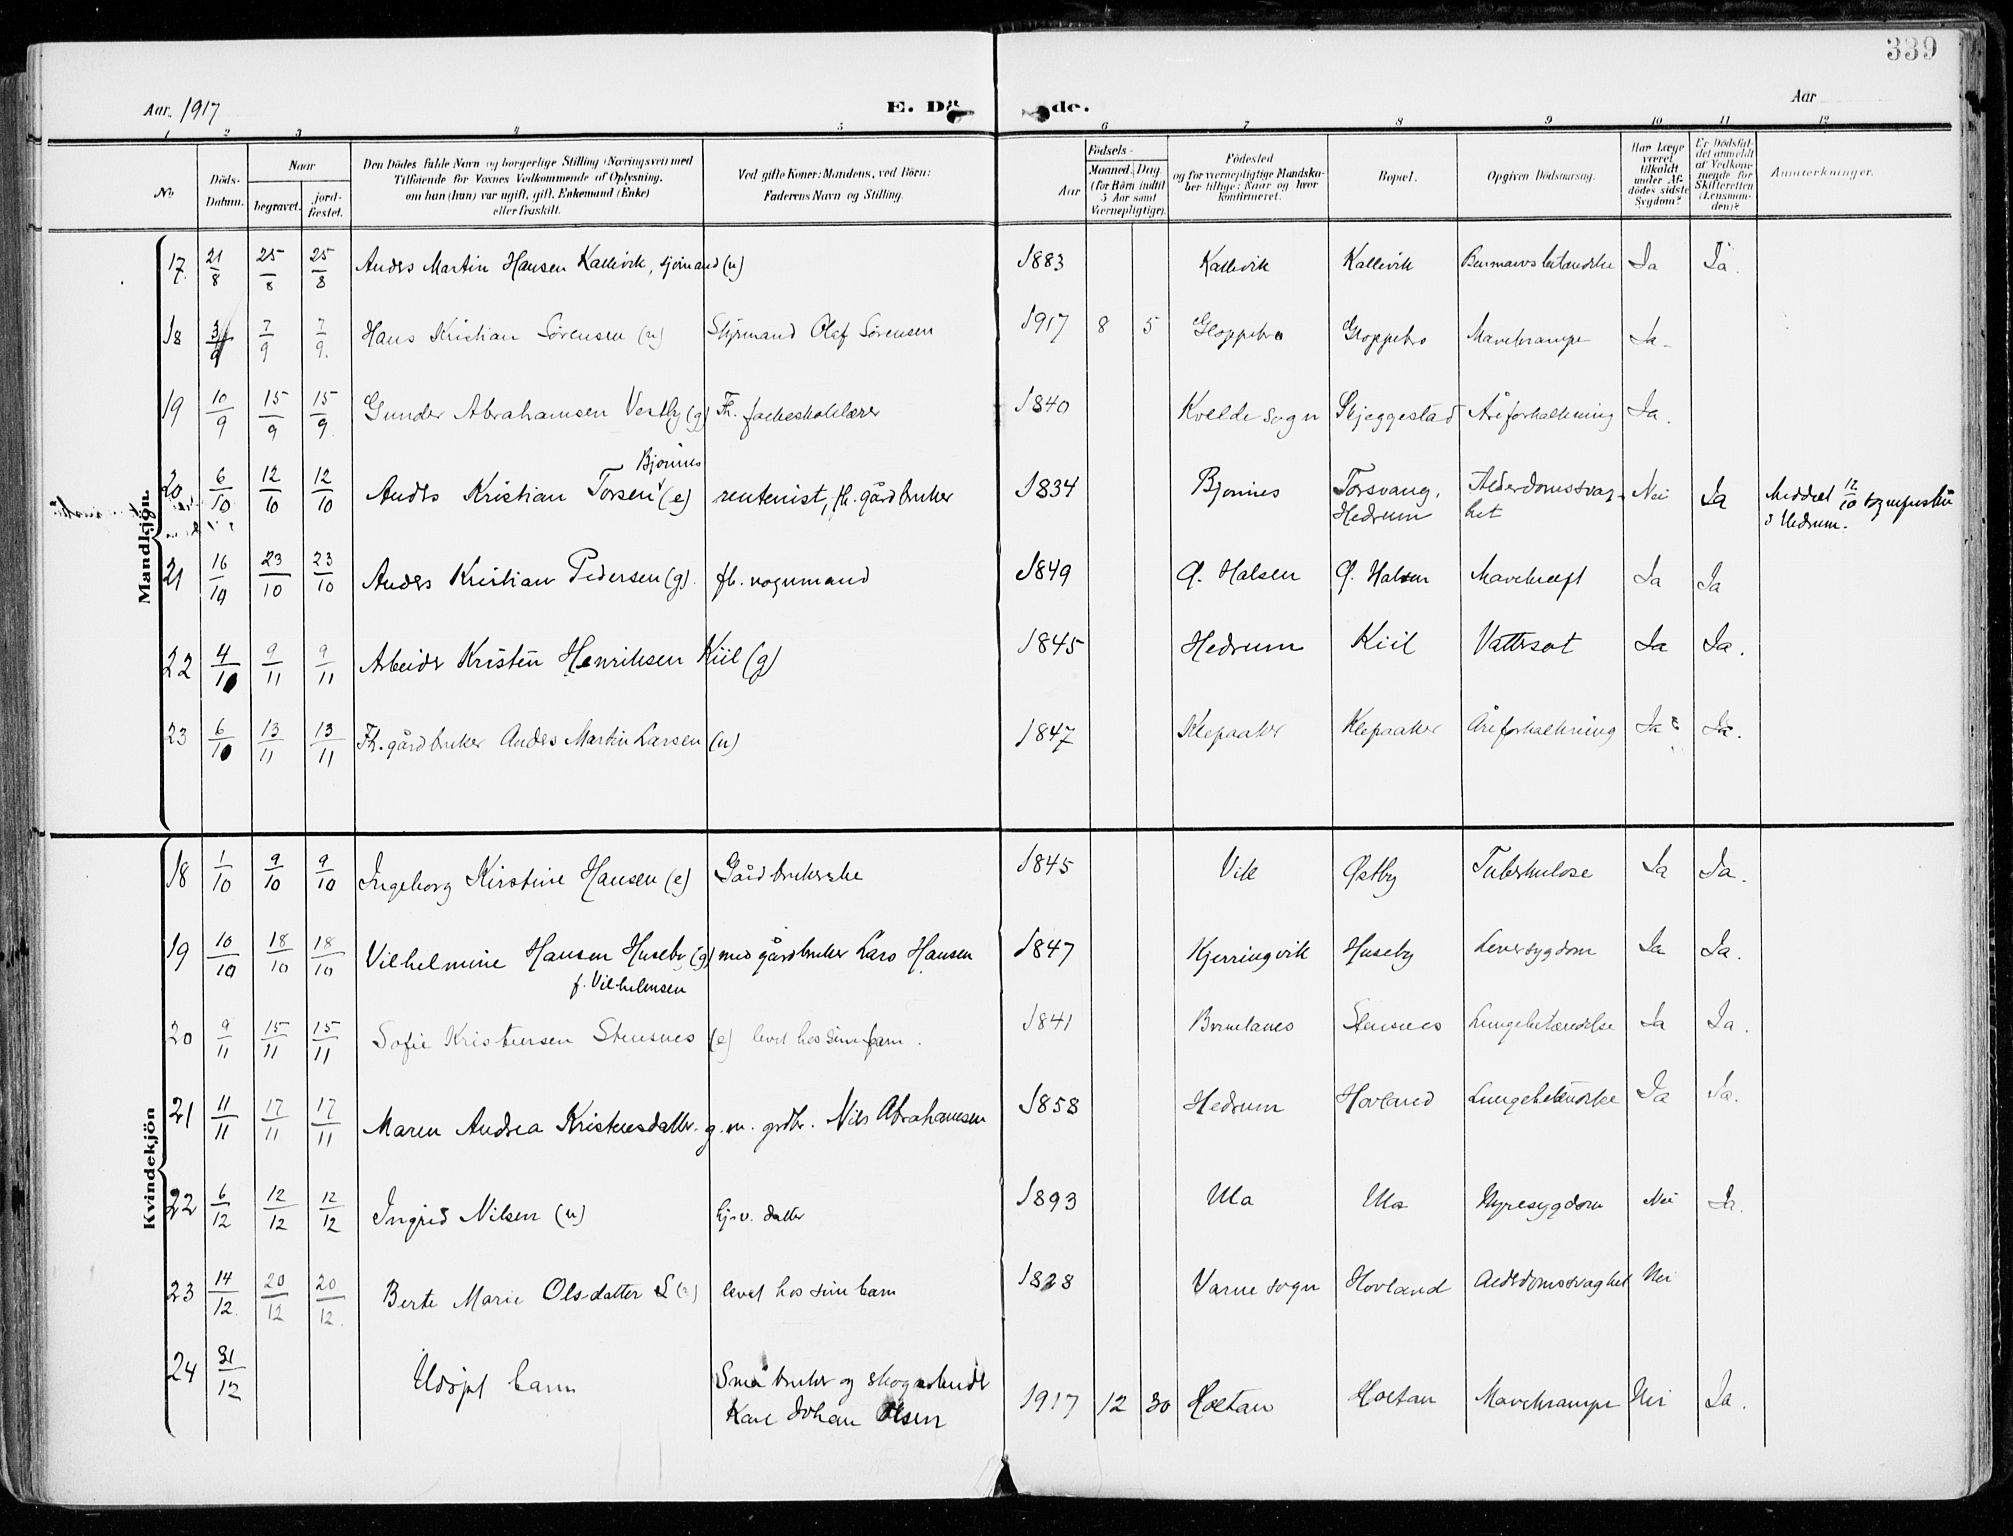 339
Aar. 1917 E. Dö de. Aar
1 2 3 4 5 6 7 8 9 10 11 12
No. Döds-Datum. Naar begravet. jordfæstet. Den Dödes fulde Navn og borgerlige Stilling (Næringsvei) med Tilföiende for Voxnes Vedkommende af Oplysning, om han (hun) var ugift, gift, Enkemand (Enke) eller fraskilt. Ved gifte Koner: Mandens, ved Börn: Faderens Navn og Stilling. Aar Födsels- Maaned. Dag (for Börn indtil 5 Aar samt Værnepligtige). Födested og for værnepligtige Mandskaber tillige: Naar og hvor konfirmeret. Bopæl. Opgiven Dödsaarsag. Har Læge været tilkaldt under Afdödes sidste Sygdom? Er Dödsfaldet anmeldt af Vedkommende for Skifteretten (Lensmanden)? Anmerkninger.
Mandkjön.
17. 21/8 25/8 25/8 Anders Martin Hansen Kallevik, sjömand (u) 1883 Kallevik Kallevik Ja Ja.
18 3/9 7/9 7/9. Hans Kristian Sørensen (u) Styrmand Olaf Sørensen 1917 8 5 Gloppebro Gloppebro Mavekrampe Ja.
19 10/9 15/9 15/9. Gunder Abrahamsen Vestby (g) Fh. folkeskolelærer 1840 Kvelde sogn Skjeggestad Åreforkalkning Ja.
Bjønnes
20 6/10 12/10 12/10 Anders Kristian Torsen (e) rentenist, fh. gårdbruker 1834 Bjønnes Torsvang, Hedrum Alderdomssvaghet Nei Ja Meddelt 12/10 sognepresten i Hedrum.
21 16/10 23/10 23/10 Anders Kristian Pedersen (g). fh. vognmand 1849 Ø. Halsen Ø. Halsen Mavekræft Ja Ja
22 4/10 9/11 9/11 Arbeider Kristen Henriksen Kiil (g) 1845 Hedrum Kiil Vattersot Ja Ja.
23 6/10 13/11 13/11 Fh. gårdbruker Anders Martin Larsen (u) 1847 Klepaaker Klepaaker Åreforkalkning Ja Ja.
Kvindekjön
18 1/10 9/10 9/10 Ingeborg Kirstine Hansen (e) Gårdbrukerske 1845 Vik Østby Tuberkulose Ja Ja.
19 10/10 18/10 18/10 Vilhelmine Hansen Huseby (g) med gårdbruker Lars Hansen 1847 Kjerringvik Huseby Leversygdom Ja Ja.
f. Vilhelmsen
20 9/11 15/11 15/11 Sofie Kristensen Stensnes (e) levet hos sine barn. 1841 Stensnes Lungebetændelse Ja Ja.
21 11/11 17/11 17/11 Maren Andrea Kristensdatter. g. m. grdbr. Nils Abrahamsen 1858 Hedrum Hovland Lungebetændelse Ja Ja.
22 6/12 12/12 12/12 Ingrid Nilsen (u) datter 1893 Ula Ula Nyresygdom Nei Ja.
23 14/12. 20/12 20/12. Berte Marie Olsdatter (e) levet hos sine barn 1828 Varne sogn Hovland Alderdomssvaghet Nei
24 31/12 Udøpt barn Småbruker og skogsarbeider 1917 12 30 Holtan Holtan Mavekrampe Nei Ja.
Karl Johan Olsen